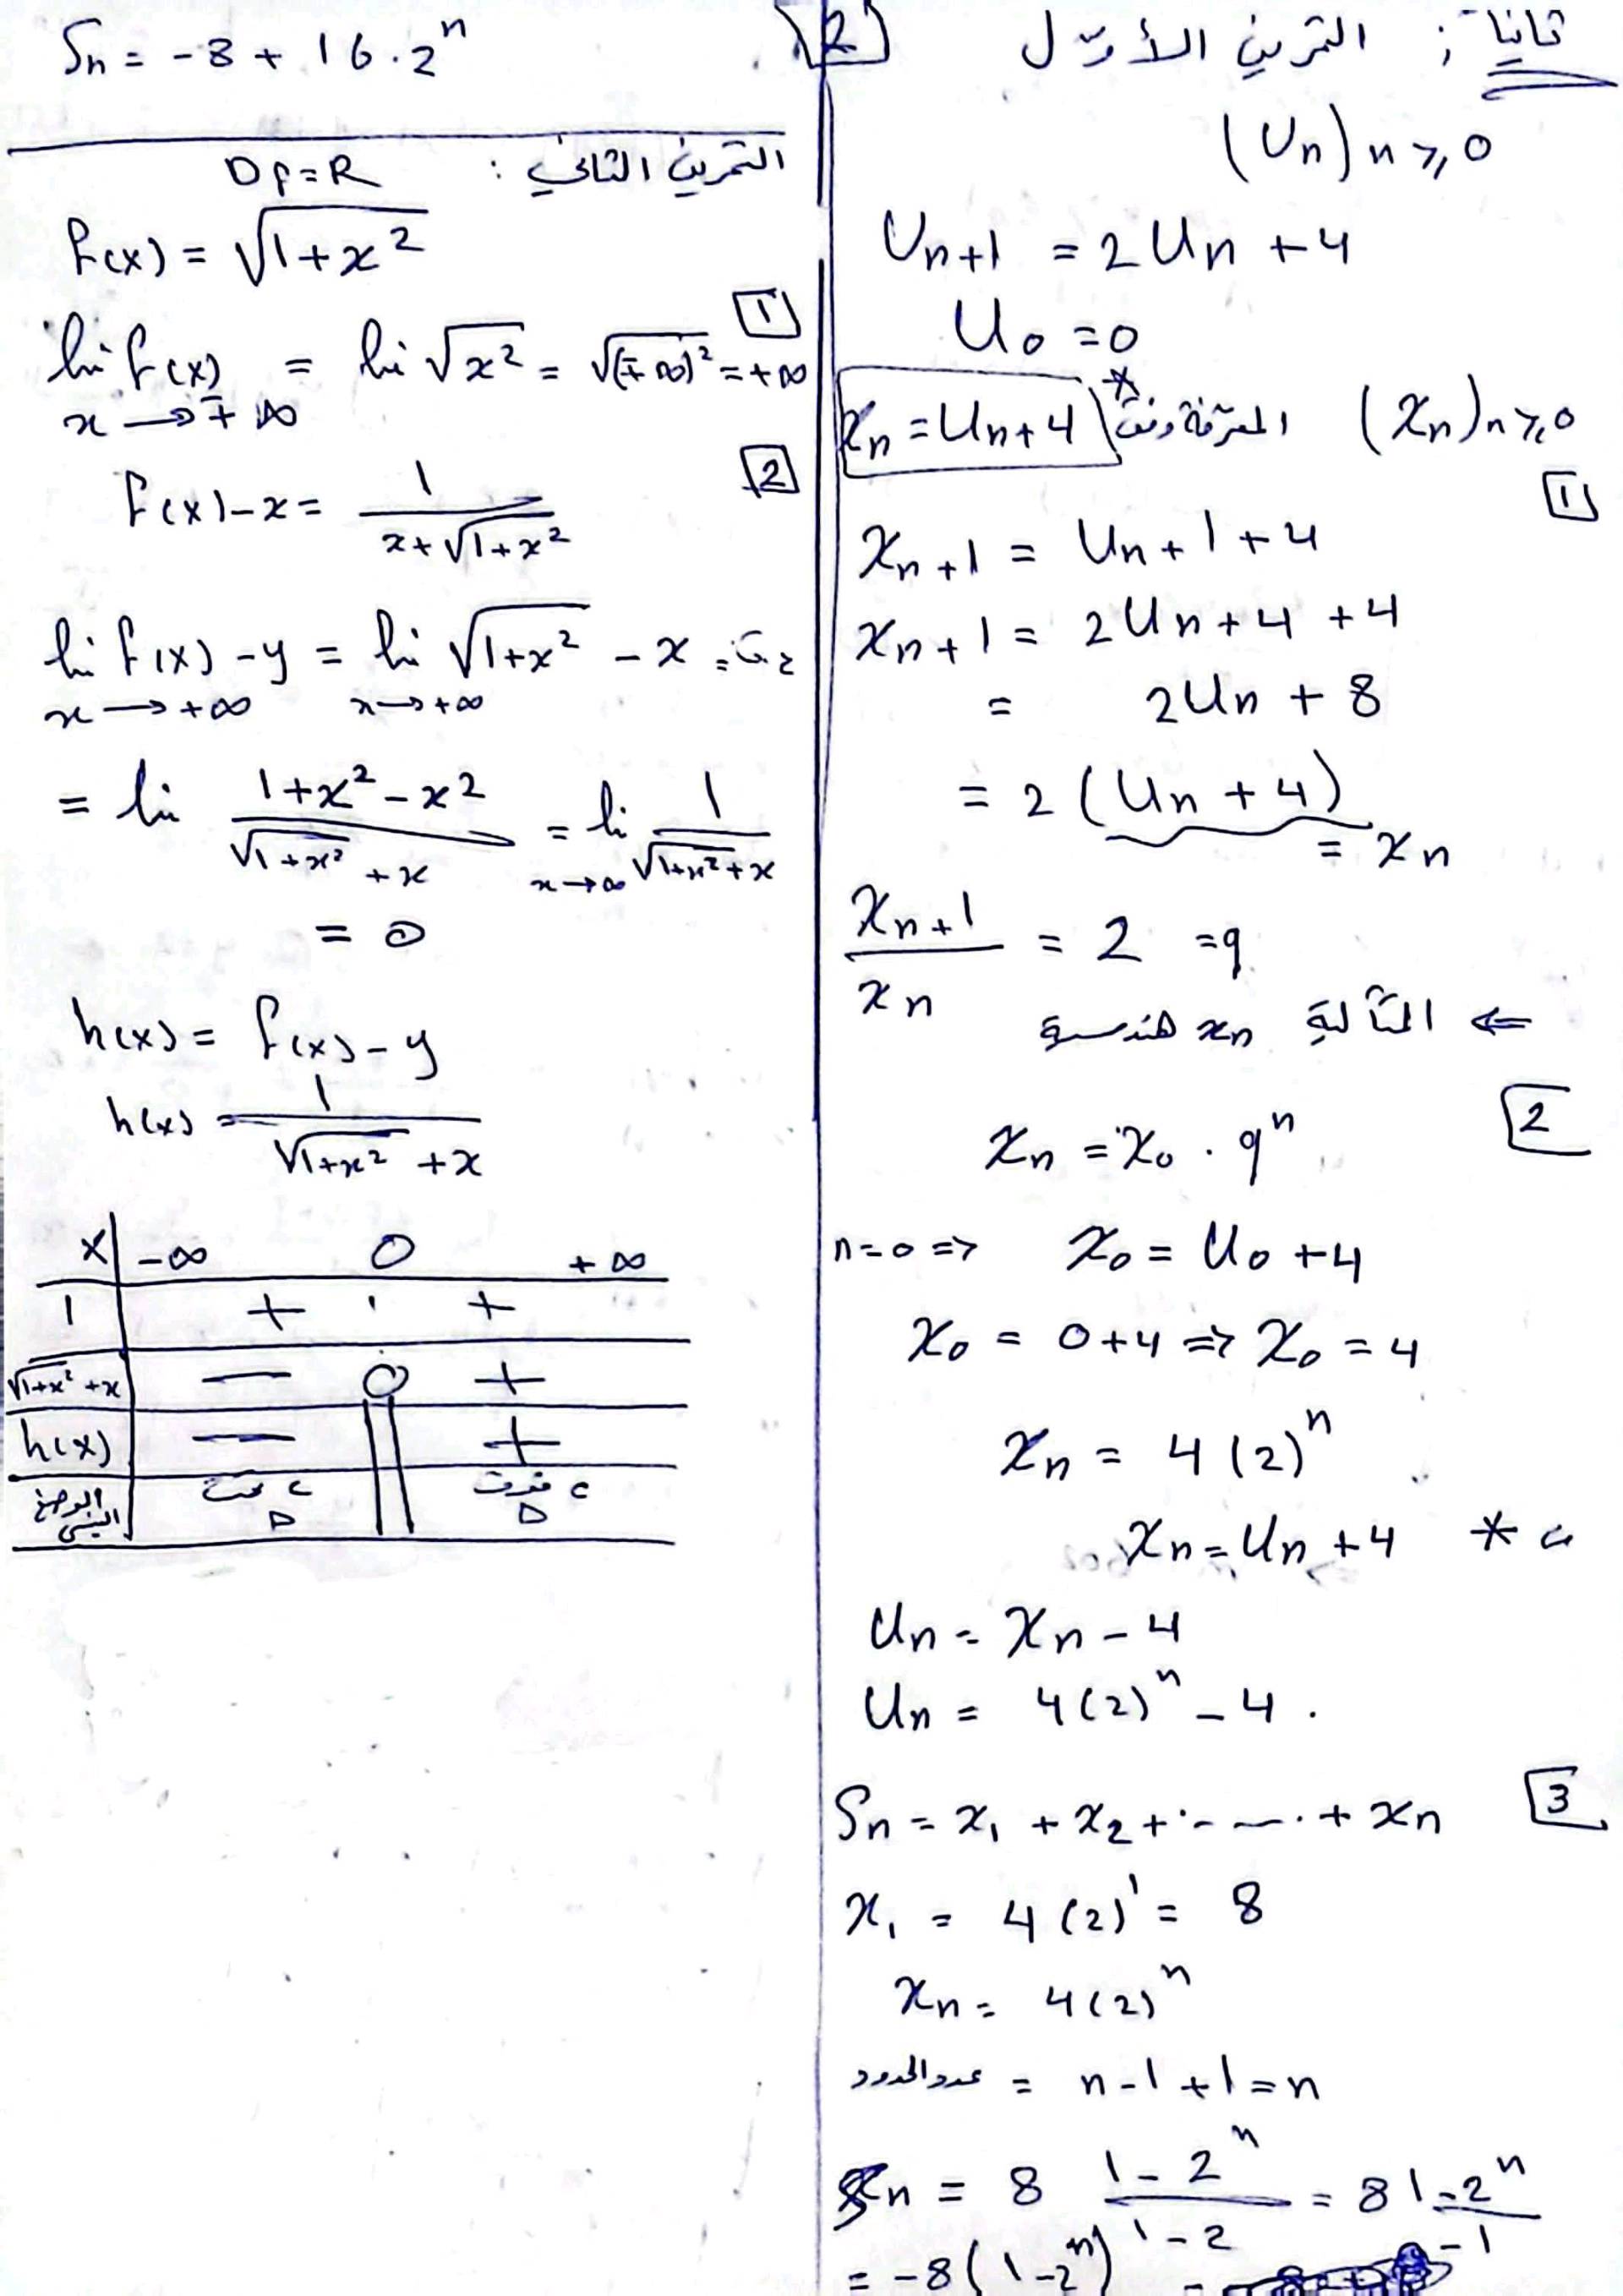 ثانياً: التمرين الأول
(Un)n≥0
Un+1 = 2Un + 4
U0 = 0
(xn)n≥0 المعرفة وفق * xn = Un + 4
1
xn+1 = Un+1 + 4
xn+1 = 2Un + 4 + 4
= 2Un + 8
= 2(Un + 4)
= xn
xn+1 / xn = 2 = q
⇐ المتتالية xn هندسية
2
xn = x0 . q^n
n=0 ⇒ x0 = U0 + 4
x0 = 0+4 ⇒ x0 = 4
xn = 4(2)^n
xn = Un + 4 *
Un = xn - 4
Un = 4(2)^n - 4 .
3
Sn = x1 + x2 + ...... + xn
x1 = 4(2)^1 = 8
xn = 4(2)^n
عدد الحدود = n-1+1 = n
Sn = 8 (1-2^n)/(1-2) = 8 (1-2^n)/(-1)
= -8(1-2^n)
2
Sn = -8 + 16.2^n
التمرين الثاني: Df = R
f(x) = √(1+x²)
1
lim f(x) x→∓∞ = lim √x² = √(∓∞)² = +∞
2
f(x)-x = 1/(x+√(1+x²))
lim f(x)-y x→+∞ = lim √(1+x²) - x x→+∞ =
= lim (1+x²-x²)/(√(1+x²)+x) = lim x→∞ 1/(√(1+x²)+x)
= 0
h(x) = f(x)-y
h(x) = 1/(√(1+x²)+x)
x -∞ 0 +∞
1 + +
√(1+x²)+x — 0 +
h(x) — +
الوضع النسبي C تحت D C فوق D